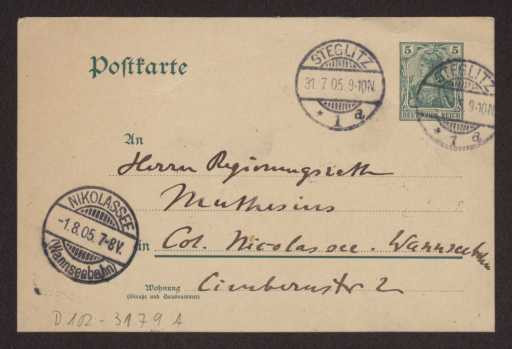 Postkarte
STEGLITZ
31.7.05.9-10N.
* 1 a.
5 5
DEUTSCHES REICH
STEGLITZ
9-10N.
* 1 a.
An
Herrn Regierungsrath
Muthesius
in Col. Nicolassee. Wannseebahn
Wohnung
(Straße und Hausnummer)
Cimbernstr 2
NIKOLASSEE
-1.8.05.7-8V.
(Wannseebahn)
D102-3179 A